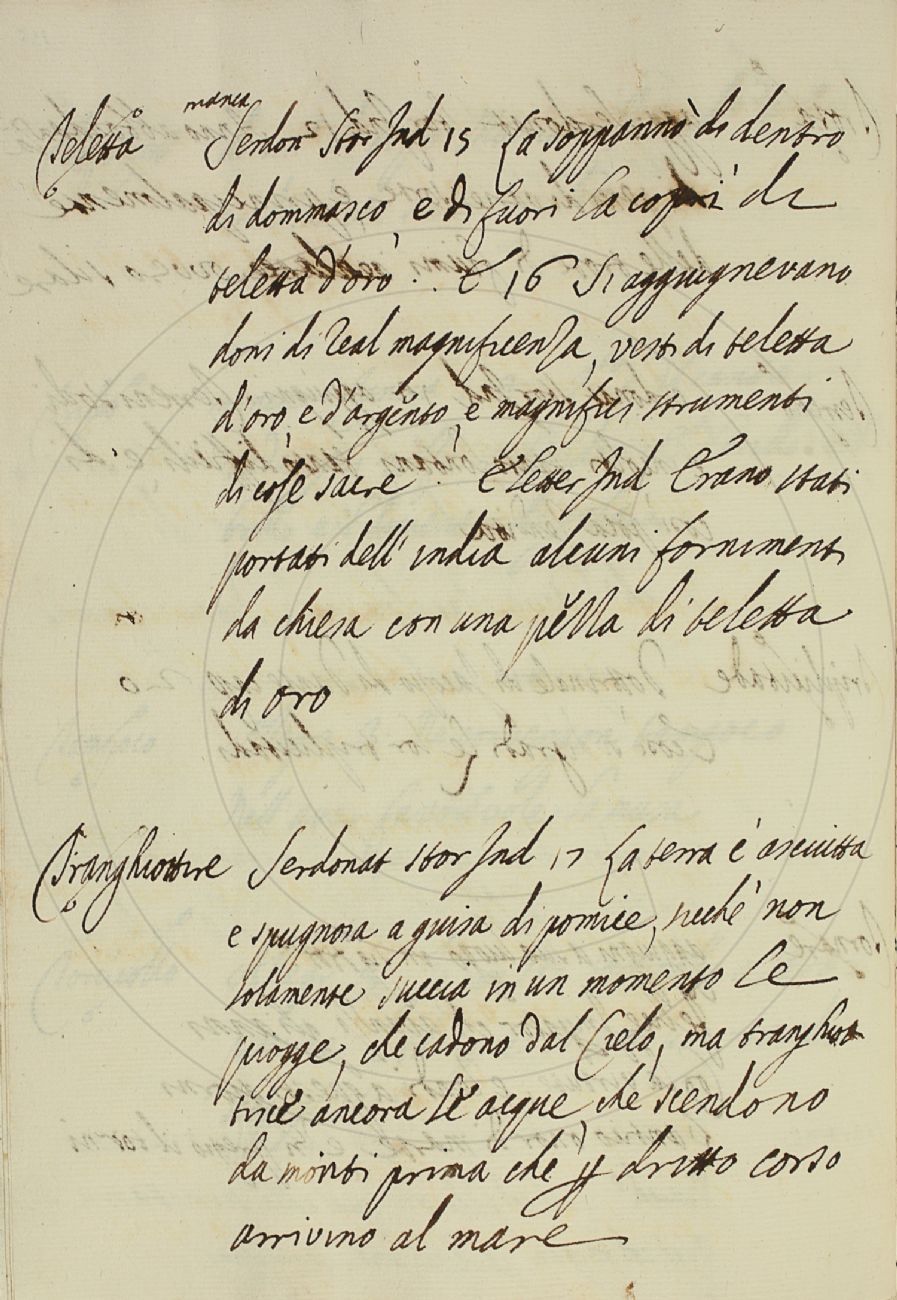 manca
Teletta Serdon Stor Ind 15 La soppannò di dentro
di dommasco, e di fuori la coprì di
teletta d'oro. E 16 Si aggiugnevano
doni di real magnificenza, vesti di teletta
d'oro, e d'argento, e magnifici strumenti
di cose sacre. E Letter Ind Erano stati
portati dell'india alcuni forniment
da chiesa con una di teletta
di oro
Tranghiottire Serdonat Stor Ind 17 La terra è asciutta
e spugnosa a guisa di pomice, sicchè non
solamente succia in un momento le
piogge, che cadono dal Cielo, ma tranghiot
tisce ancora le acque, che scendono
da monti prima che dritto corso
arrivino al mare